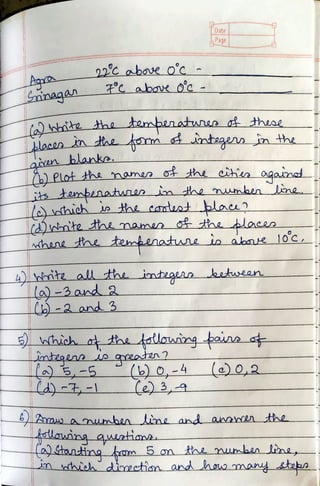 Date
Page
Agra 22°C above 0°C - 
Srinagar 7°C above 0°C - 
(a) Write the temperatures of these
places in the form of integers in the
given blanks.
(b) Plot the names of the cities against
its temperatures in the number line.
(c) Which is the coolest place?
(d) Write the names of the places
where the temperature is above 10°C.
4) Write all the integers between
(a) -3 and 2
(b) -2 and 3
5) Which of the following pairs of
integers is greater?
(a) 5, -5 (b) 0, -4 (c) 0, 2
(d) -7, -1 (e) 3, -9
6) Draw a number line and answer the
following questions.
(a) Starting from 5 on the number line,
in which direction and how many steps